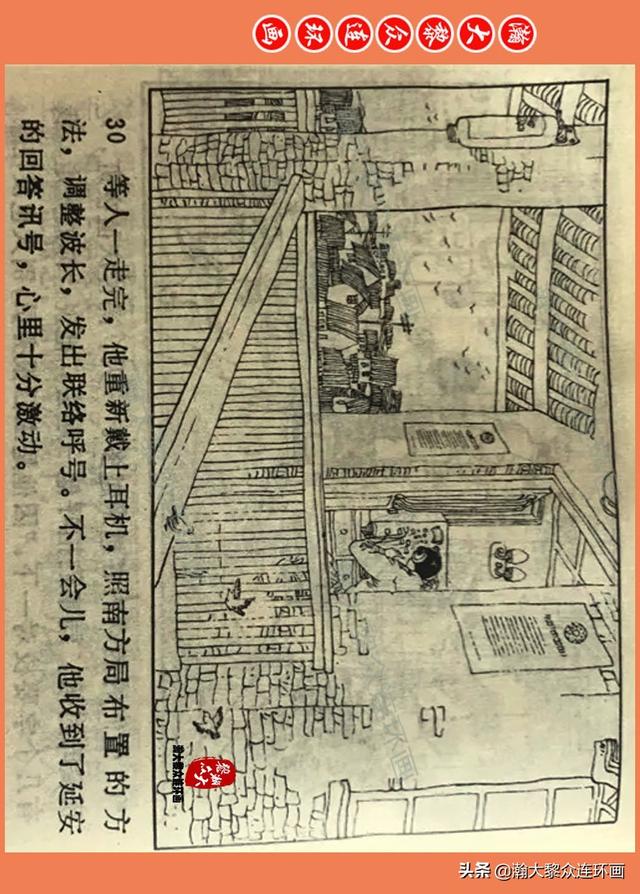 瀚大黎众连环画
30 等人一走完，他重新戴上耳机，照南方局布置的方
法，调整波长，发出联络呼号。不一会儿，他收到了延安
的回答讯号，心里十分激动。
瀚大黎众连环画
头条 @瀚大黎众连环画